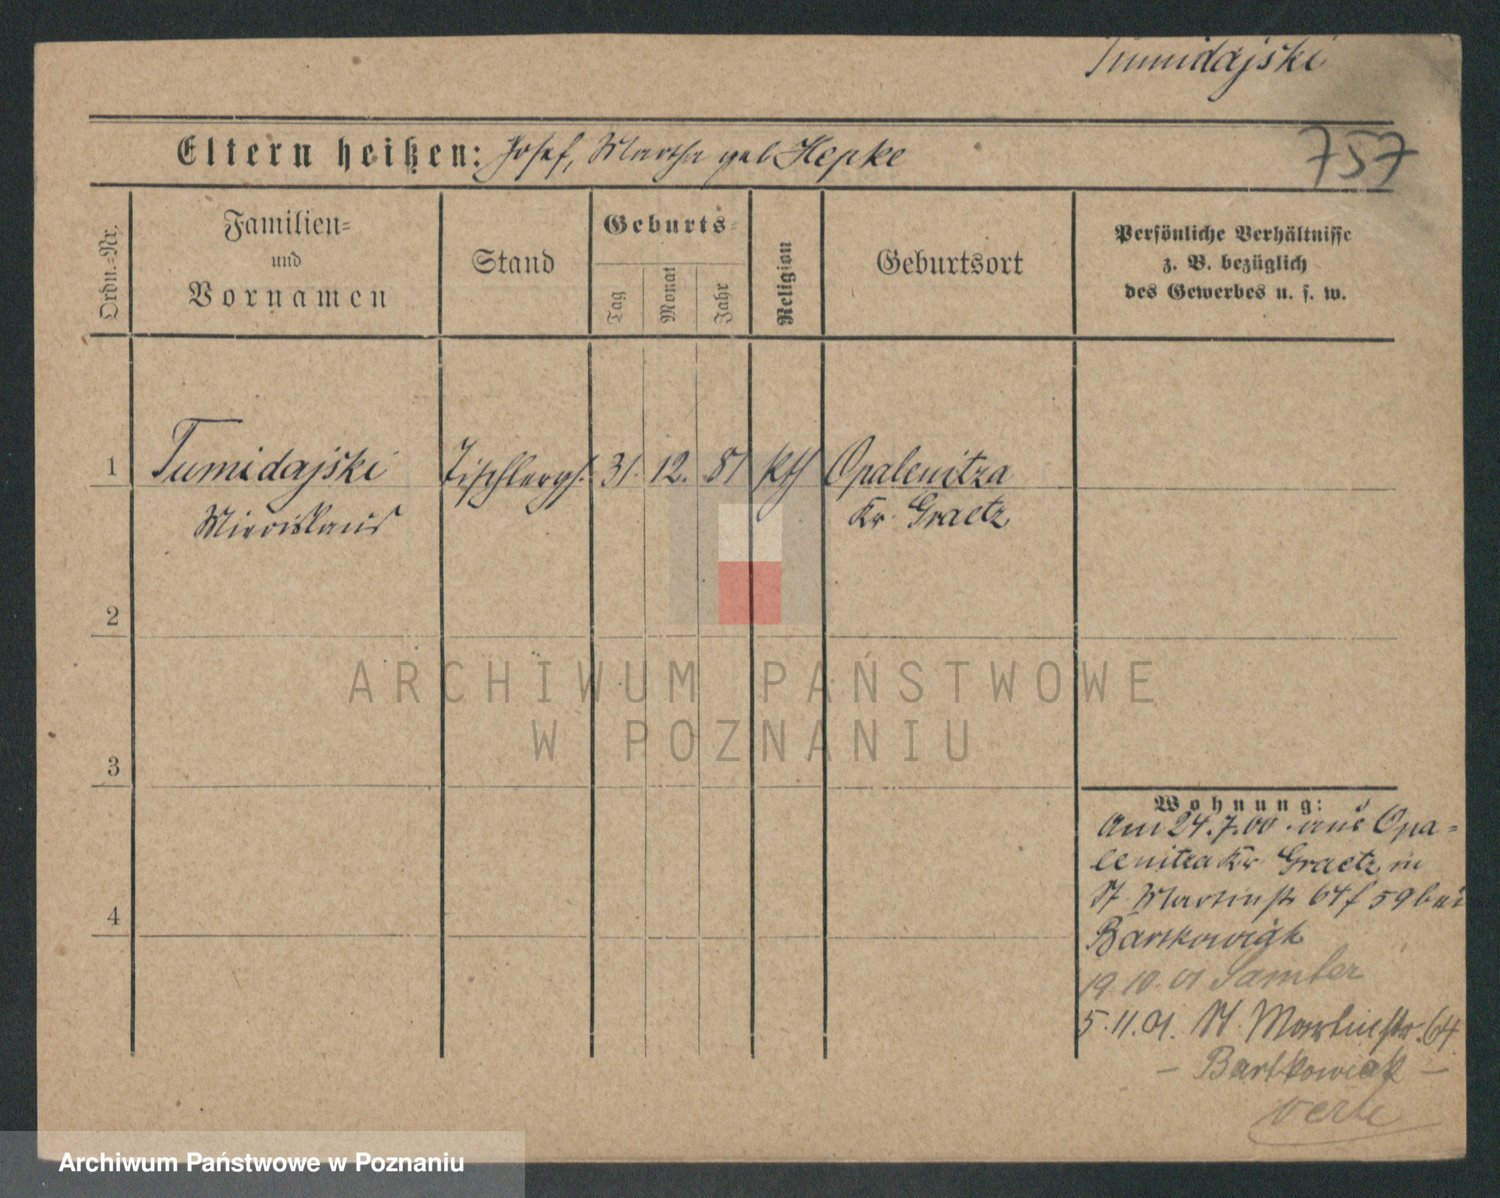 Tumidajski
757
Eltern heißen: Josef, Martha geb Hepke
Ordn.-Nr.
Familien-
und
Vornamen
Stand
Geburts-
Tag
Monat
Jahr
Religion
Geburtsort
Persönliche Verhältnisse
z. B. bezüglich
des Gewerbes u. s. w.
1 Tumidajski Tischlergs. 31. 12. 81 kth Opalenitza
Kr. Graetz
2
ARCHIWUM PAŃSTWOWE
W POZNANIU
3
Wohnung:
Am 24.7.00 aus Opa-
lenitza Kr Graetz in
St Martinstr 64 59 bei
Bartkowiak
19.10.01 Samter
5.11.01. St. Martinstr. 64
- Bartkowiak -
verte
4
Archiwum Państwowe w Poznaniu